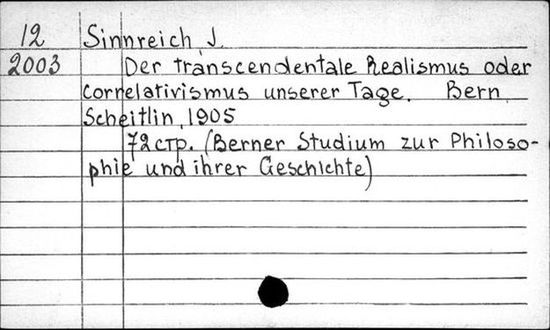 12 Sinnreich, J.
2003 Der transcendentale Realismus oder
Correlativismus unserer Tage. Bern,
Scheitlin, 1905
72 стр. (Berner Studium zur Philoso-
phie und ihrer Geschichte)